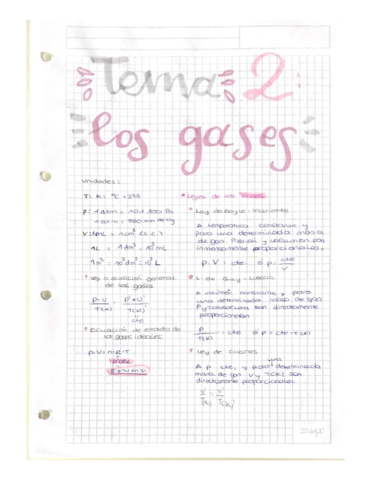 Tema 2:
los gases
Unidades:
T: K = ºC + 273
P: 1 atm = 101 300 Pa
1 atm = 760 mm de Hg
V: 1 mL = 1 cm³ (c.c.)
1L = 1 dm³ = 10³ mL
1 m³ = 10³ dm³ = 10³ L
* Ley o ecuación general
de los gases
P·V / T(K) = P'·V' / T'(K)
* Ecuación de estado de
los gases ideales
P·V = n·R·T
* Leyes de los
* Ley de Boyle-Mariotte
A temperatura constante y
para una determinada masa
de gas. Presión y volumen son
inversamente proporcionales.
P·V = cte ó P = cte / V
* L. de Gay-Lussac
A volumen constante y para
una determinada masa de gas
P y temperatura son directamente
proporcionales
P / T(K) = cte ó P = cte·T(K)
* Ley de Charles
A p cte, y para una determinada
masa de gas V y T(K) son
directamente proporcionales
V / T(K) = V' / T(K)'